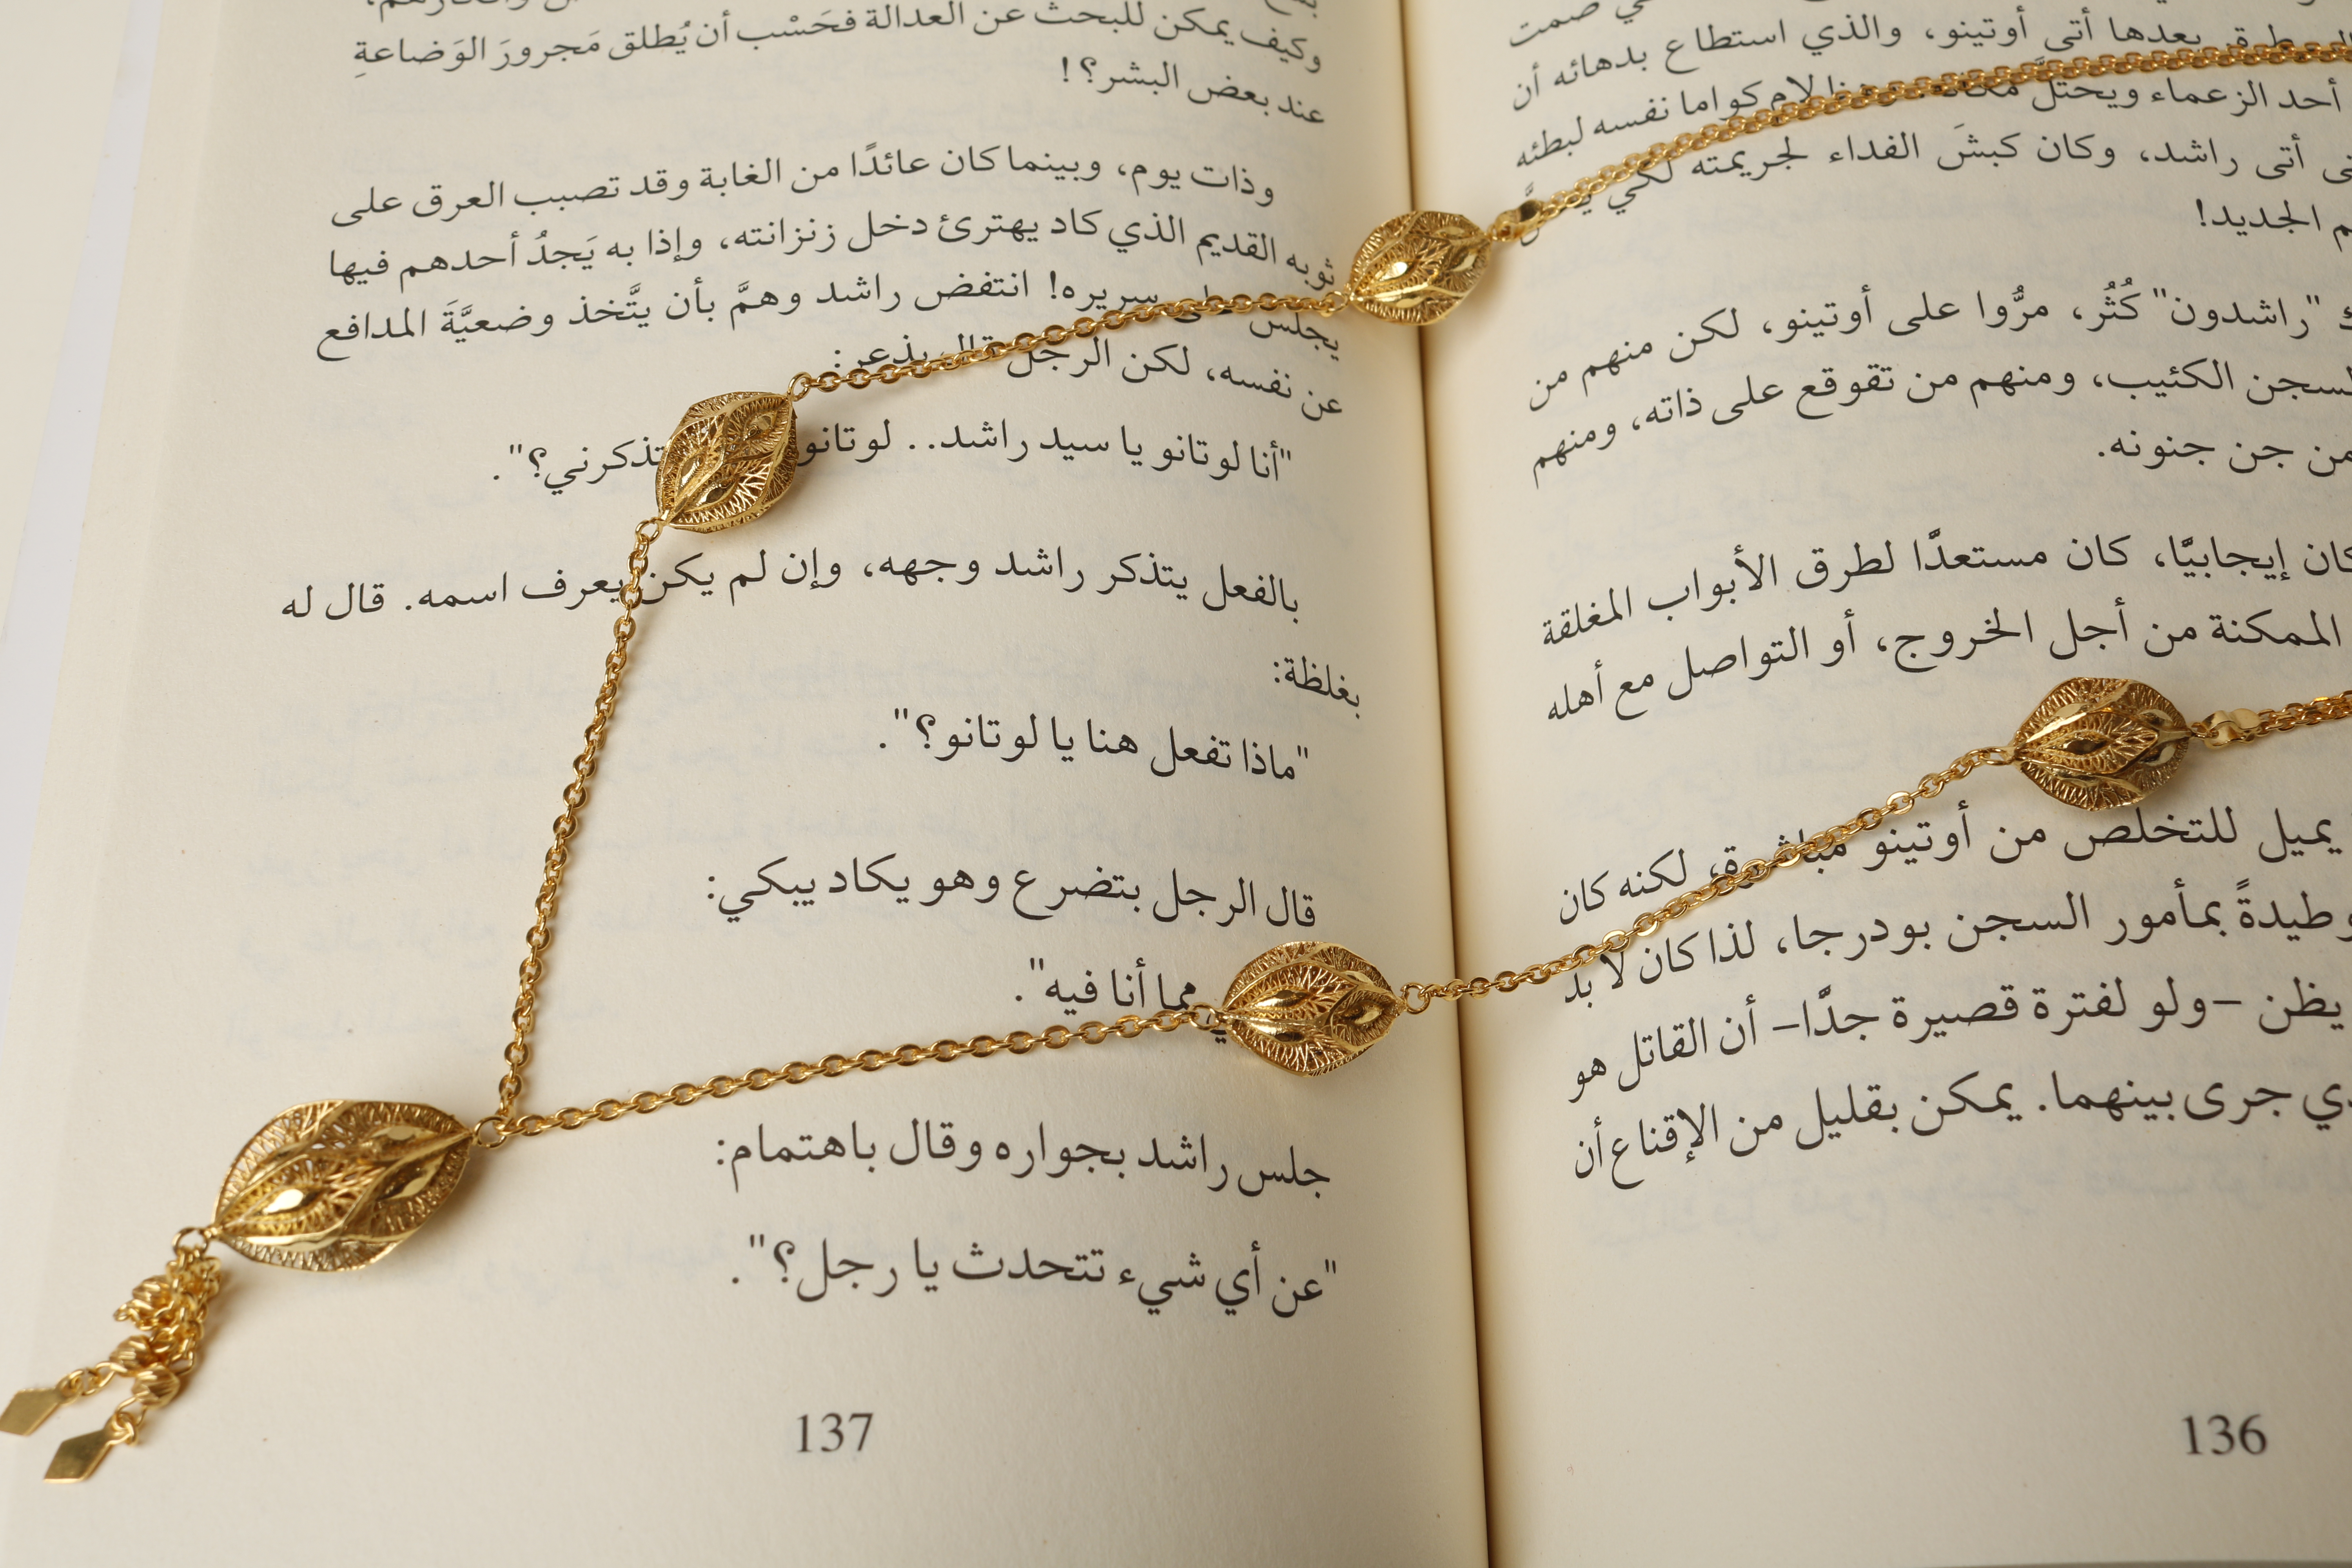 صمت
بعدها أتى أوتينو، والذي استطاع بدهائه أن
أحد الزعماء ويحتلَّ لام كواما نفسه لبطئه
أتى راشد، وكان كبشَ الفداء لجريمته لكي
الجديد!
"راشدون" كُثُر، مرُّوا على أوتينو، لكن منهم من
الكئيب، ومنهم من تقوقع على ذاته، ومنهم
من جن جنونه.
كان إيجابيًّا، كان مستعدًّا لطرق الأبواب المغلقة
الممكنة من أجل الخروج، أو التواصل مع أهله
يميل للتخلص من أوتينو مباشرة، لكنه كان
وطيدةً بمأمور السجن بودرجا، لذا كان لا بد
يظن –ولو لفترة قصيرة جدًّا– أن القاتل هو
جرى بينهما. يمكن بقليل من الإقناع أن
136
وكيف يمكن للبحث عن العدالة فحَسْب أن يُطلق مَجرورَ الوَضاعةِ
عند بعض البشر؟!
وذات يوم، وبينما كان عائدًا من الغابة وقد تصبب العرق على
ثوبه القديم الذي كاد يهترئ دخل زنزانته، وإذا به يَجدُ أحدهم فيها
يجلس على سريره! انتفض راشد وهمَّ بأن يتَّخذ وضعيَّةَ المدافع
عن نفسه، لكن الرجل قال بذعر:
"أنا لوتانو يا سيد راشد.. لوتانو تذكرني؟".
بالفعل يتذكر راشد وجهه، وإن لم يكن يعرف اسمه. قال له
بغلظة:
"ماذا تفعل هنا يا لوتانو؟".
قال الرجل بتضرع وهو يكاد يبكي:
مما أنا فيه".
جلس راشد بجواره وقال باهتمام:
"عن أي شيء تتحدث يا رجل؟".
137